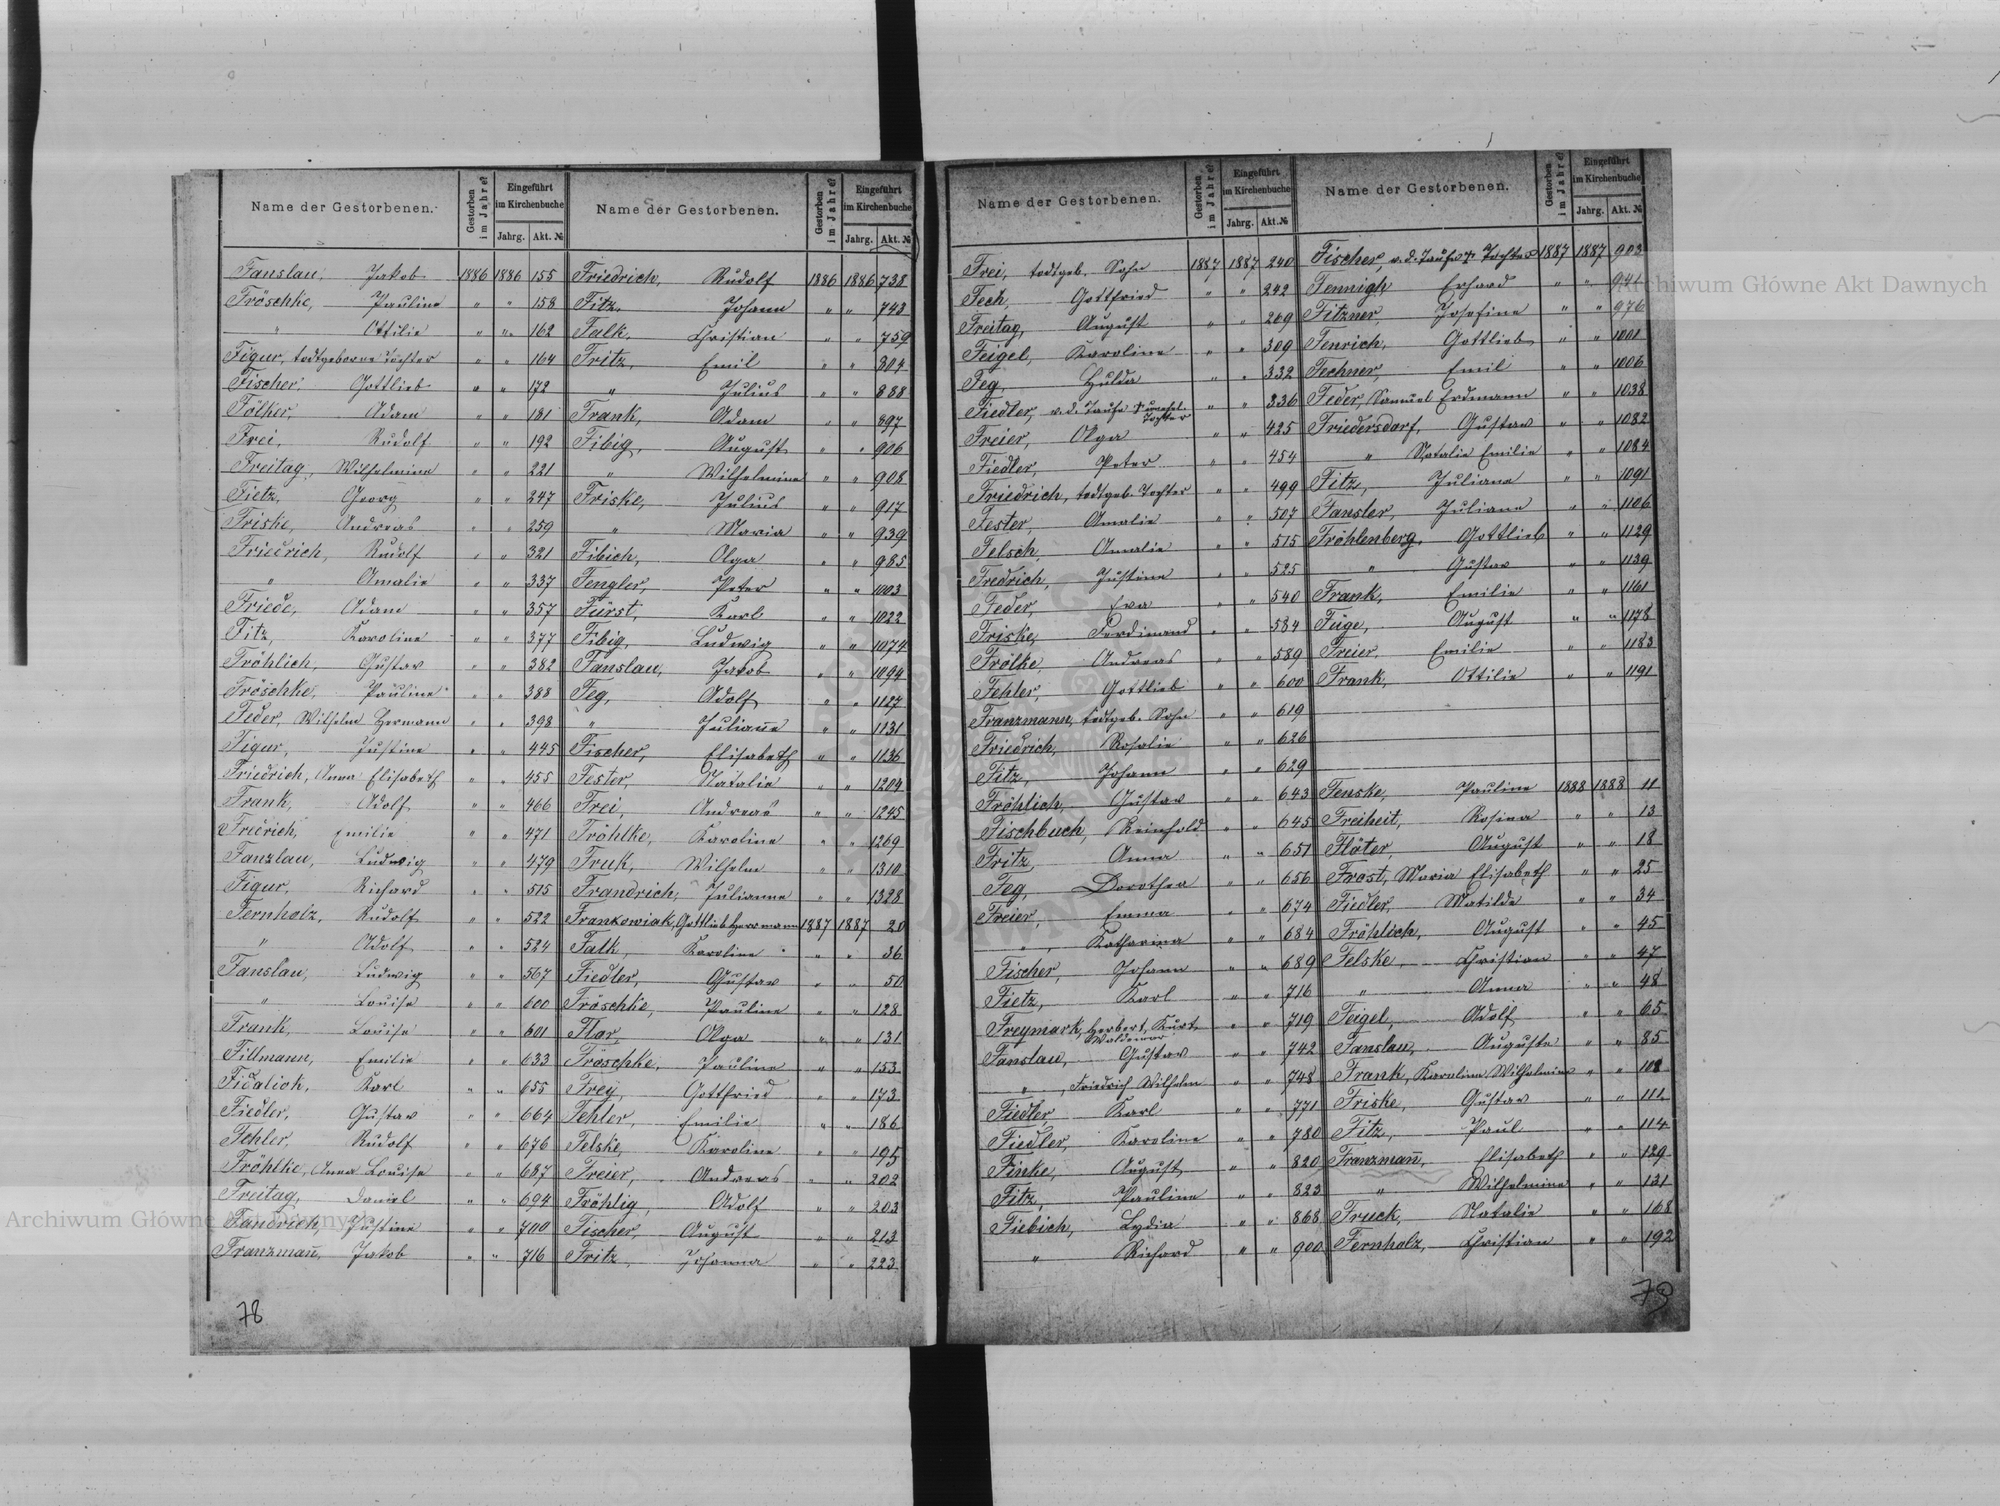 Name der Gestorbenen. Gestorben im Jahre? Eingeführt im Kirchenbuche Jahrg. Akt. №
Fanslau, Jakob 1886 1886 155
Fröschke, Pauline " " 158
" Ottilie " " 162
Figur, todtgeborne Tochter " " 164
Fischer Gottlieb " " 172
Fölker, Adam " " 181
Frei, Rudolf " " 192
Freitag, Wilhelmine " " 221
Fietz, Georg " " 247
Friske, Andreas " " 259
Friedrich, Rudolf " " 321
" Amalie " " 337
Friede, Adam " " 357
Fitz, Karoline " " 377
Fröhlich, Gustav " " 382
Fröschke, Pauline " " 388
Feder, Wilhelm Hermann " " 398
Figur, Justine " " 445
Friedrich, Anna Elisabeth " " 455
Frank, Adolf " " 466
Friedrich, Emilie " " 471
Fanzlau, Ludwig " " 479
Figur, Richard " " 515
Fernholz, Rudolf " " 522
" Adolf " " 524
Fanslau, Ludwig " " 567
" Louise " " 600
Frank, Louise " " 601
Fillmann, Emilie " " 633
Fidaliok, Karl " " 655
Fiedler, Gustav " " 664
Fehler, Rudolf " " 676
Fröhlke, Anna Louise " " 687
Freitag, Daniel " " 694
Fandrich, Justine " " 700
Franzmañ, Jakob " " 716
78
Name der Gestorbenen. Gestorben im Jahre? Eingeführt im Kirchenbuche Jahrg. Akt. №
Friedrich, Rudolf 1886 1886 738
Fitz, Johann " " 743
Falk, Christian " " 759
Fritz, Emil " " 804
" Julius " " 888
Frank, Adam " " 897
Fibig, August " " 906
" Wilhelmine " " 908
Friske, Julius " " 917
" Maria " " 939
Fibich, Olga " " 985
Fengler, Peter " " 1003
Fürst, Karl " " 1022
Fibig, Ludwig " " 1074
Fanslau, Jakob " " 1094
Feg, Adolf " " 1127
" Juliane " " 1131
Fischer, Elisabeth " " 1136
Fester, Natalie " " 1204
Frei, Andreas " " 1245
Fröhlke, Karoline " " 1269
Fruk, Wilhelm " " 1310
Frandrich, Julianne " " 1328
Frankowiak, Gottlieb Herrmann 1887 1887 20
Falk, Karoline " " 36
Fiedler, Gustav " " 50
Fröschke, Pauline " " 128
Flor, Olga " " 131
Fröschke, Pauline " " 153
Frey, Gottfried " " 173
Fehler, Emilie " " 186
Felske, Karoline " " 195
Freier, Andreas " " 202
Fröhlig, Adolf " " 203
Fischer, August " " 213
Fritz, Johanna " " 223
Name der Gestorbenen. Gestorben im Jahre? Eingeführt im Kirchenbuche Jahrg. Akt. №
Frei, todtgeb. Sohn 1887 1887 240
Fech, Gottfried " " 242
Freitag, August " " 269
Feigel, Karoline " " 309
Feg, Hulda " " 332
Fiedler, v. d. Taufe Tochter " " 336
Freier, Olga " " 425
Fiedler, Peter " " 454
Friedrich, todtgeb. Tochter " " 499
Fester, Amalie " " 507
Felsch, Amalie " " 515
Fredrich, Justine " " 525
Feder, Eva " " 540
Friske, Ferdinand " " 584
Frölke, Andreas " " 589
Fehler, Gottlieb " " 600
Franzmann, todtgeb. Sohn " " 619
Friedrich, Rosalie " " 626
Fitz, Johann " " 629
Fröhlich, Gustav " " 643
Fischbuch, Reinhold " " 645
Fritz, Anna " " 651
Feg, Dorothea " " 656
Freier, Emma " " 674
" , Katharina " " 684
Fischer, Johann " " 689
Fietz, Karl " " 716
Freymark, Herbert, Kurt, Waldemar " " 719
Fanslau, Gustav " " 742
" , Friedrich Wilhelm " " 748
Fiedler, Karl " " 771
Fiedler, Karoline " " 780
Finke, August " " 820
Fitz, Pauline " " 823
Fiebich, Lydia " " 868
" Richard " " 900
Name der Gestorbenen. Gestorben im Jahre? Eingeführt im Kirchenbuche Jahrg. Akt. №
Fischer, v. d. Taufe † Tochter 1887 1887 903
Fennigh Erhard " " 941
Fitzner, Josefine " " 976
Fenrich, Gottlieb " " 1001
Fechner, Emil " " 1006
Feder, Samuel Erdmann " " 1038
Friedersdorf, Gustav " " 1082
" Natalie Emilie " " 1084
Fitz, Juliana " " 1091
Fansler, Juliane " " 1106
Fröhlenberg, Gottlieb " " 1129
" Gustav " " 1139
Frank, Emilie " " 1161
Füge, August " " 1178
Freier, Emilie " " 1183
Frank, Ottilie " " 1191
Fenske, Pauline 1888 1888 11
Freiheit, Rosina " " 13
Flöter, August " " 18
Frost, Maria Elisabeth " " 25
Fiedler, Matilde " " 34
Fröhlich, August " " 45
Felske, Christian " " 47
" Anna " " 48
Feigel, Adolf " " 65
Fanslau, Auguste " " 85
Frank, Karolina Wilhelmine " " 108
Friske, Gustav " " 111
Fitz, Paul " " 114
Franzmañ, Elisabeth " " 129
" Wilhelmine " " 131
Fruck, Natalie " " 168
Fernholz, Christian " " 192
79
Archiwum Główne Akt Dawnych
Archiwum Główne Akt Dawnych